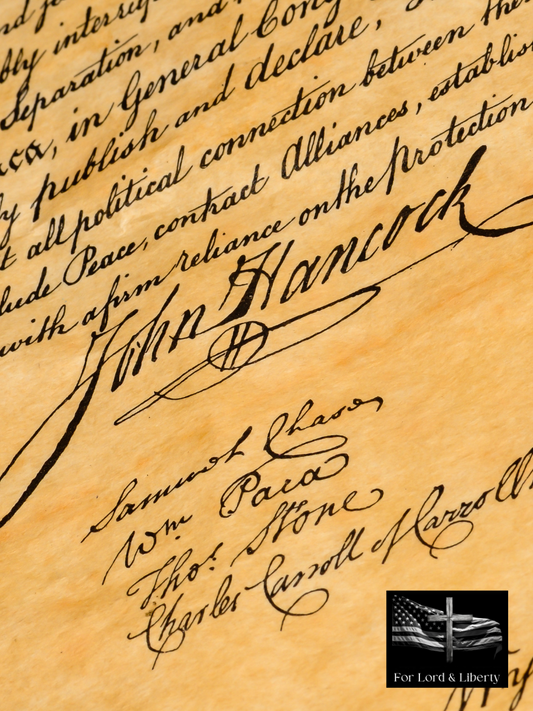 bly interrup
Separation, and
in General Cong
publish and declare,
all political connection between the
lude Peace, contract Alliances, establis
with a firm reliance on the protection
John Hancock
Samuel Chase
Wm Paca
Thos. Stone
Charles Carroll of Carroll
For Lord & Liberty